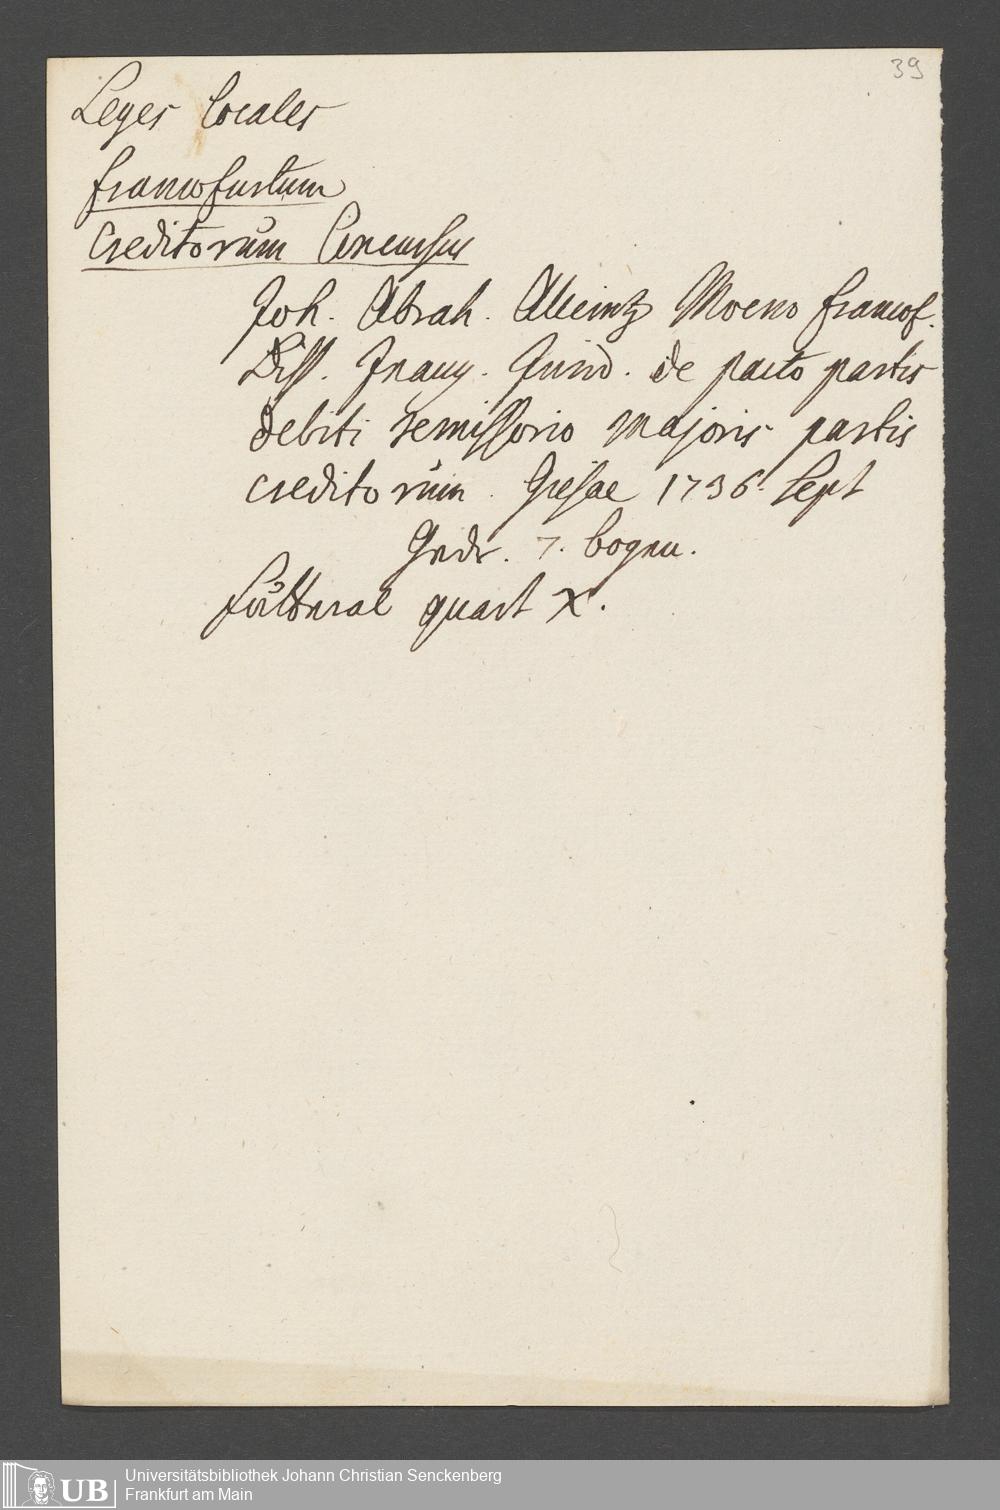 39
Leges locales
francofurtum
creditorum Concursus
Joh. Abrah. Moeno francof.
Diss. Inaug. Jurid. de pacto partis
debiti remissorio majoris partis
creditorum. Giessae 1736. Sept
Gedr. 7. bogen.
futteral quart X.
UB
Universitätsbibliothek Johann Christian Senckenberg
Frankfurt am Main